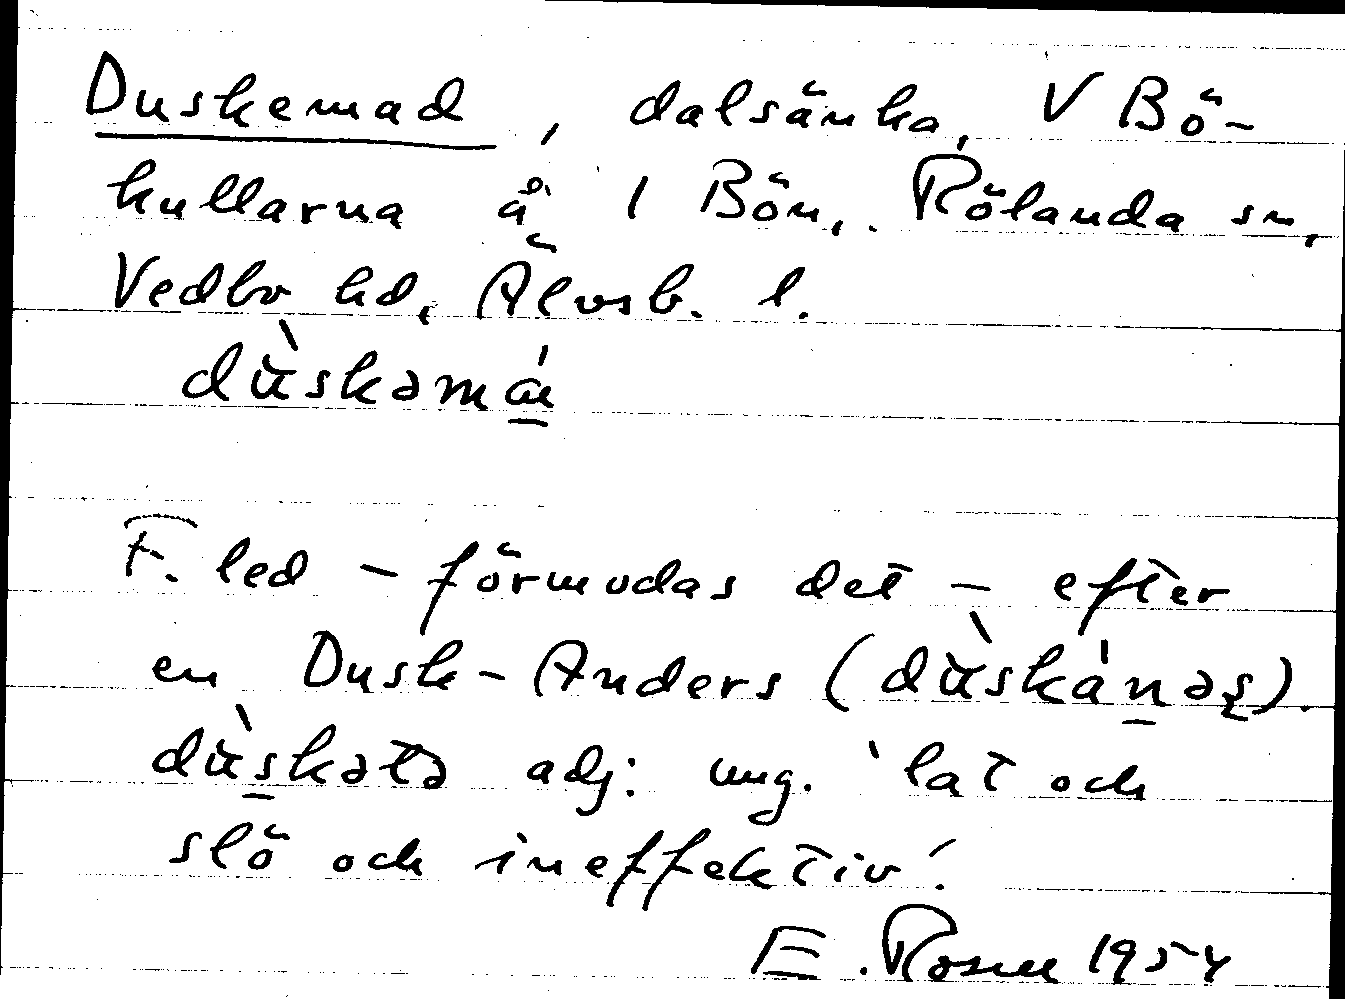 Duskemad, dalsänka, V Bö-
kullarna å 1 Bön, Rölanda sn,
Vedbo hd, Älvsb. l.
dùskəmá
F. led – förmodas det – efter
en Dusk-Anders (dùskánəs).
dùskətə adj: ung. 'lat och
slö och ineffektiv'.
E. Rosell 1954